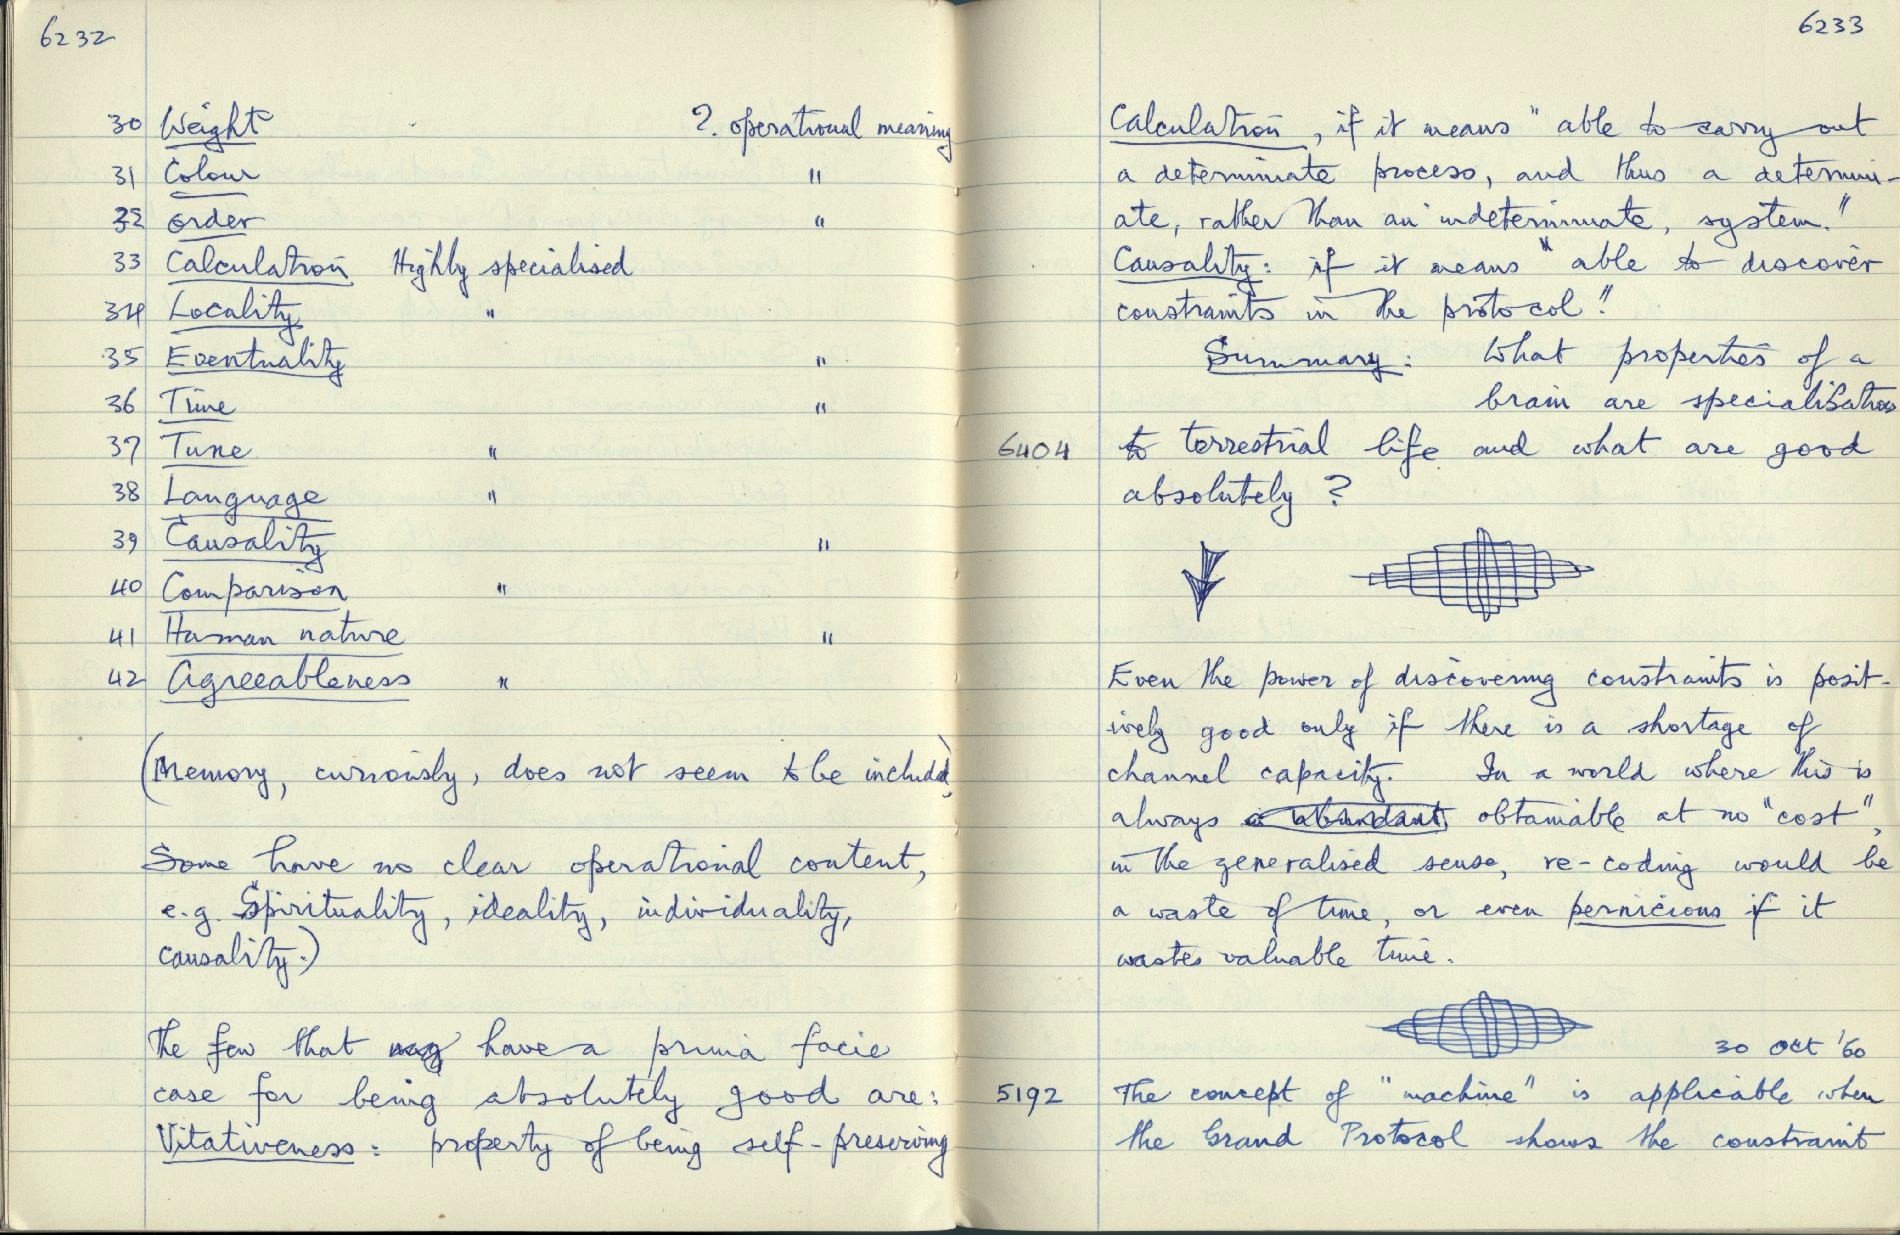 6232
30 Weight ?. operational meaning
31 Colour "
32 order "
33 Calculation Highly specialised
34 Locality "
35 Eventuality "
36 Time "
37 Tune "
38 Language "
39 Causality "
40 Comparison "
41 Human nature "
42 Agreeableness "
(Memory, curiously, does not seem to be included.
Some have no clear operational content,
e.g. Spirituality, ideality, individuality,
causality.)
The few that may have a prima facie
case for being absolutely good are:
Vitativeness: property of being self-preserving
6233
Calculation, if it means "able to carry out
a determinate process, and thus a determin-
ate, rather than an indeterminate, system."
Causality: if it means "able to discover
constraints in the protocol."
Summary: What properties of a
brain are specialisations
6404 to terrestrial life and what are good
absolutely?
Even the power of discovering constraints is posit-
ively good only if there is a shortage of
channel capacity. In a world where this is
always is abundant obtainable at no "cost",
in the generalised sense, re-coding would be
a waste of time, or even pernicious if it
wastes valuable time.
30 Oct '60
5192 The concept of "machine" is applicable when
the Grand Protocol shows the constraint